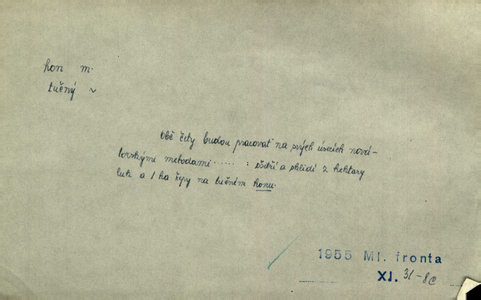 hon m.
tučný ~
Obě čety budou pracovat na svých úsecích nová-
torskými metodami ..... : ošetří a sklidí 2 hektary
luk a 1 ha řepy na tučném honu.
1955 Ml. fronta
XI. 31-8c